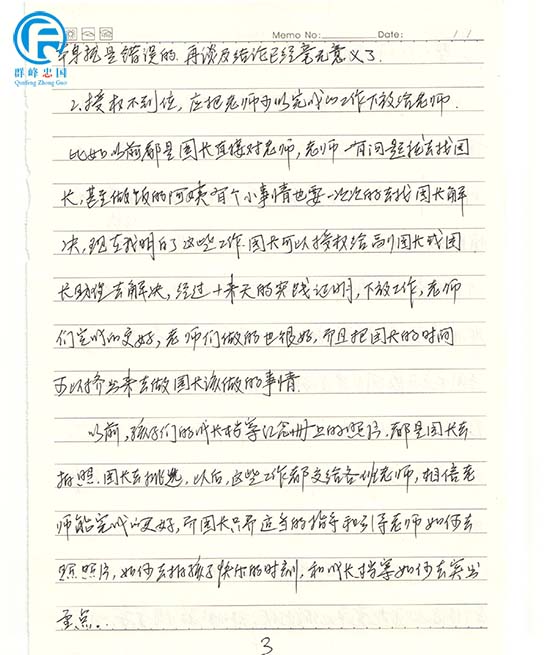 Memo No: Date: / /
群峰忠国
Qunfeng Zhong Guo
本身就是错误的.再谈及结论已经毫无意义了.
2.授权不到位,应把老师可以完成的工作下放给老师.
比如以前都是园长直接对老师,老师一有问题就去找园
长,甚至做饭的阿姨有个小事情也要一次次的去找园长解
决,现在我明白了这些工作园长可以授权给副园长或园
长助理去解决,经过十来天的实践证明,下放工作,老师
们完成的更好,老师们做的也很好,而且把园长的时间
可以挤出来去做园长该做的事情.
以前,孩子们的成长档案纪念册上的照片.都是园长去
拍照.园长去挑选,以后,这些工作都交给各班老师,相信老
师能完成的更好,而园长只需适当的指导和引导老师如何去
照照片,如何去拍孩子快乐的时刻,和成长档案如何去突出
重点..
3